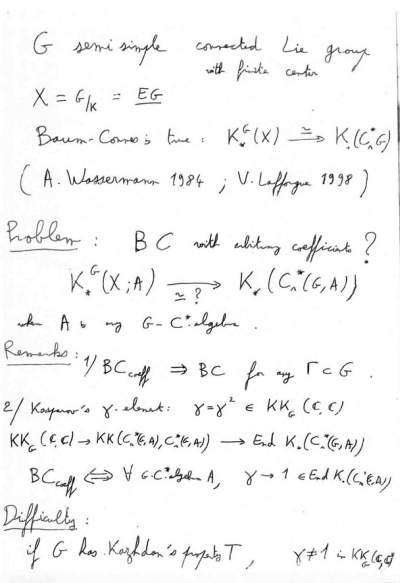 G semisimple connected Lie group
with finite center
X = G/K = EG
Baum-Connes is true : K_*^G(X) ≃→ K_*(C*_r G)
( A. Wassermann 1984 ; V. Lafforgue 1998 )
Problem : BC with arbitrary coefficients ?
K_*^G(X;A) →≃? K_*(C*_r(G,A))
when A is any G-C*algebra.
Remarks : 1/ BC_coeff ⇒ BC for any Γ ⊂ G .
2/ Kasparov's γ-element : γ=γ² ∈ KK_G(C,C)
KK_G(C,C) → KK(C*_r(G,A),C*_r(G,A)) → End K_*(C*_r(G,A))
BC_coeff ⟺ ∀ G-C*algebra A, γ → 1 ∈ End K_*(C*_r(G,A))
Difficulty :
if G has Kazhdan's property T, γ≠1 in KK_G(C,C)